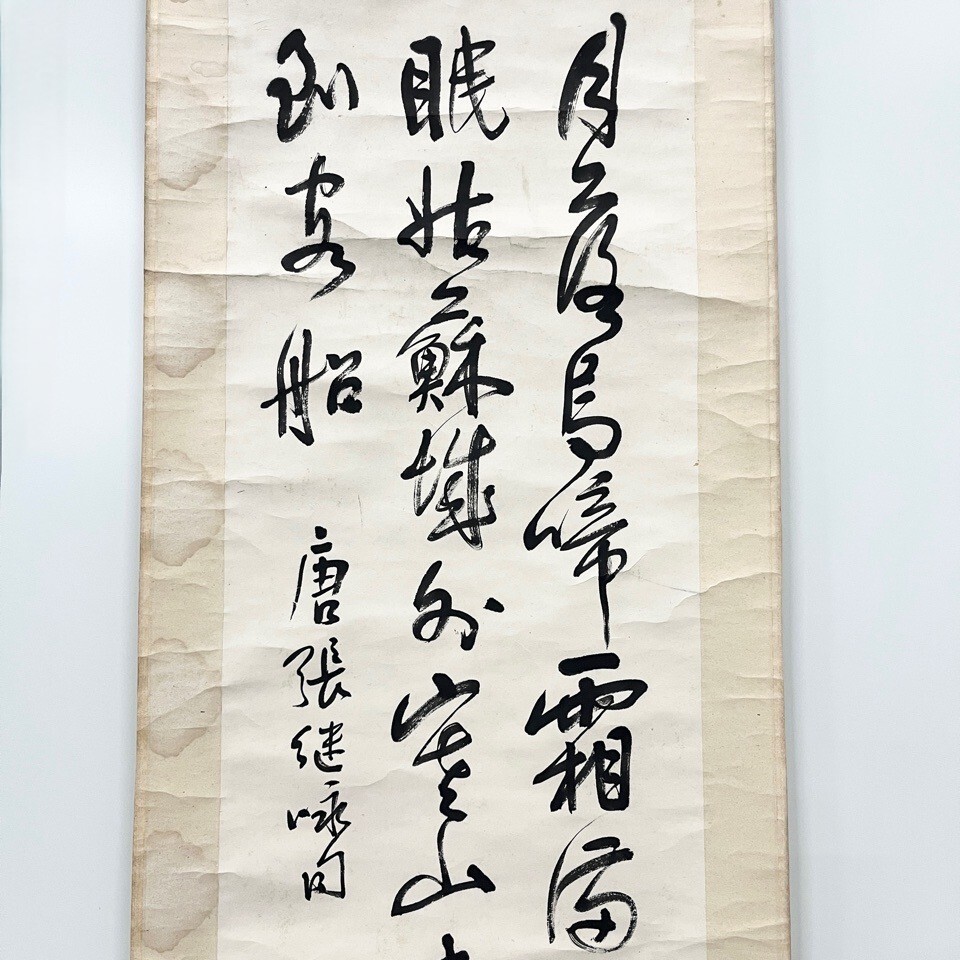 月落烏啼霜滿
眠姑蘇城外寒山
到客船
唐張继咏句